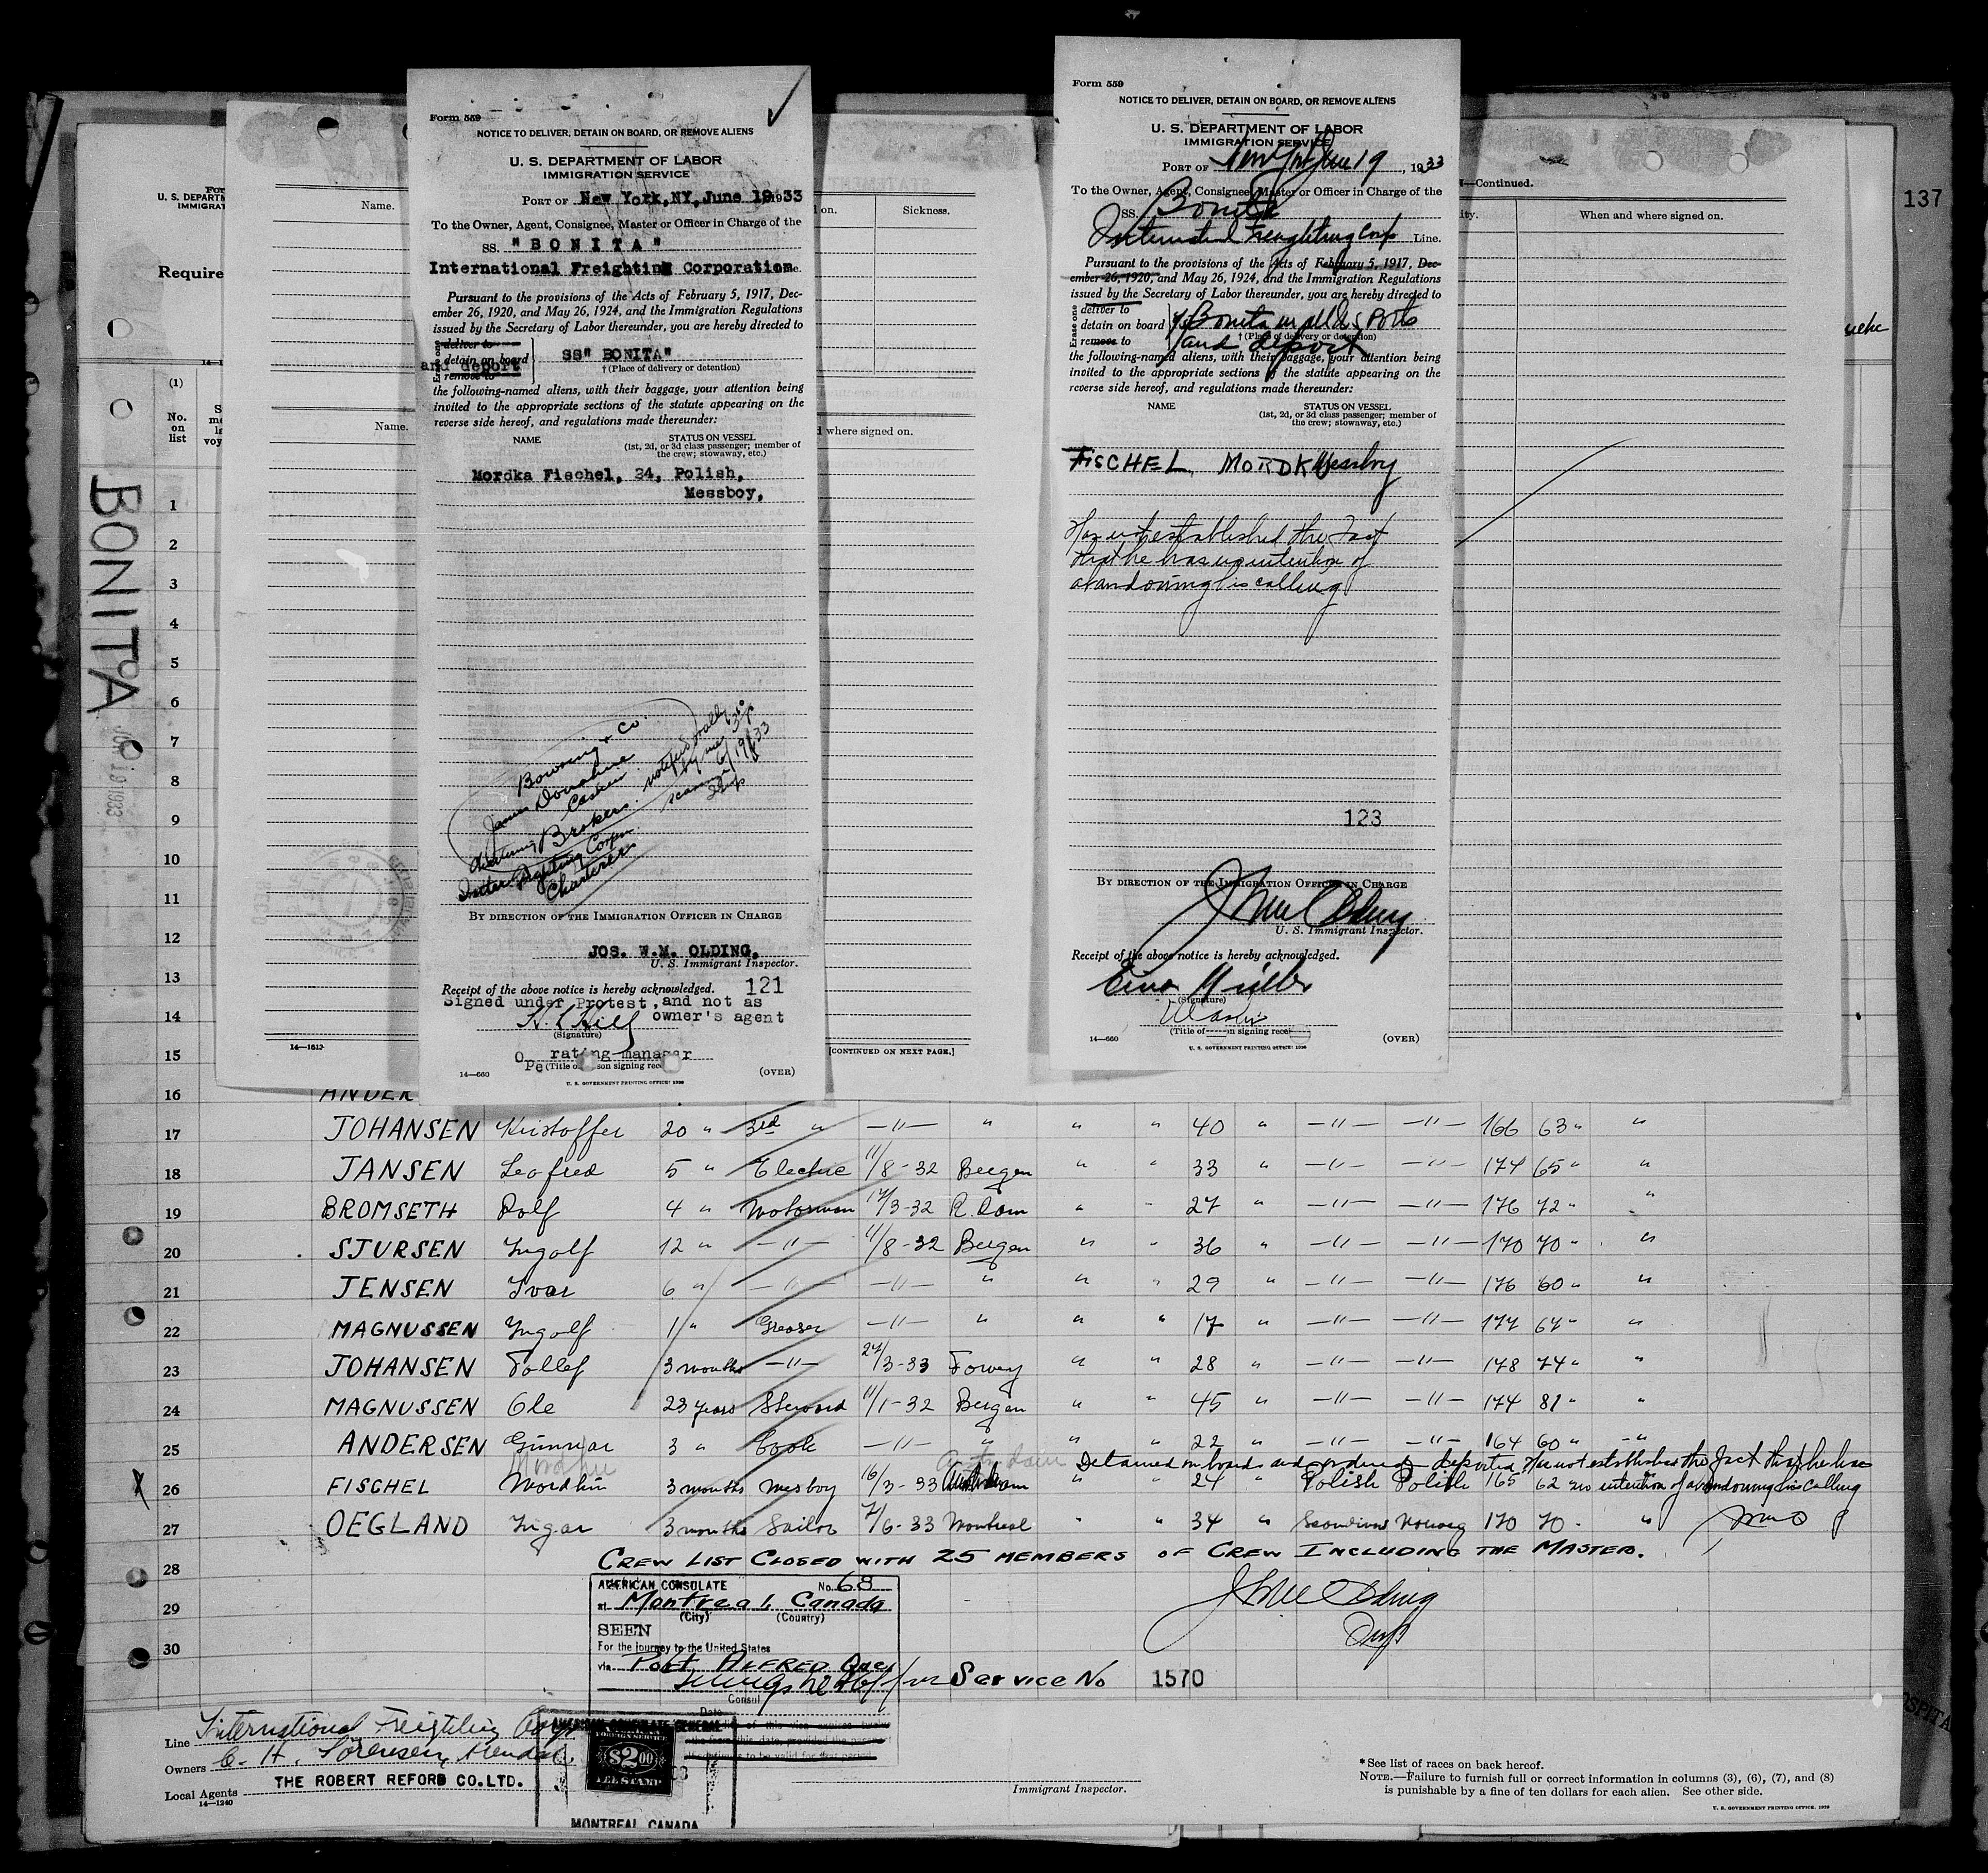 137
U. S. DEPARTM
IMMIGRAT
Require
14-1
(1)
No.
on
list
BONITA
Name.
Name.
14-1613
on.
Sickness.
d where signed on.
[CONTINUED ON NEXT PAGE.]
—Continued.
ity.
When and where signed on.
Form 559
NOTICE TO DELIVER, DETAIN ON BOARD, OR REMOVE ALIENS
U. S. DEPARTMENT OF LABOR
IMMIGRATION SERVICE
PORT OF New York, NY, June 19 1933
To the Owner, Agent, Consignee, Master or Officer in Charge of the
SS. "BONITA"
International Freighting Corporation
Pursuant to the provisions of the Acts of February 5, 1917, Dec-
ember 26, 1920, and May 26, 1924, and the Immigration Regulations
issued by the Secretary of Labor thereunder, you are hereby directed to
Erase one
deliver to
detain on board
and deport
remove to
SS" BONITA"
† (Place of delivery or detention)
the following-named aliens, with their baggage, your attention being
invited to the appropriate sections of the statute appearing on the
reverse side hereof, and regulations made thereunder:
NAME STATUS ON VESSEL
(1st, 2d, or 3d class passenger; member of
the crew; stowaway, etc.)
Mordka Fischel, 24, Polish,
Messboy,
Bowring & Co.
James Donahue
Cashier
notified orally
by me
6/19/33
Brokers
Inter. Freighting Corpn
Charterers
BY DIRECTION OF THE IMMIGRATION OFFICER IN CHARGE
JOS. W.M. OLDING,
U. S. Immigrant Inspector.
Receipt of the above notice is hereby acknowledged. 121
Signed under Protest, and not as
owner's agent
(Signature)
Operating manager
14-660 (OVER)
U. S. GOVERNMENT PRINTING OFFICE: 1930
Form 559
NOTICE TO DELIVER, DETAIN ON BOARD, OR REMOVE ALIENS
U. S. DEPARTMENT OF LABOR
IMMIGRATION SERVICE
PORT OF New York June 19, 1933
To the Owner, Agent, Consignee, Master or Officer in Charge of the
SS. Bonita
International Freighting Corp Line.
Pursuant to the provisions of the Acts of February 5, 1917, Dec-
ember 26, 1920, and May 26, 1924, and the Immigration Regulations
issued by the Secretary of Labor thereunder, you are hereby directed to
Erase one
deliver to
detain on board
remove to
Bonita in all U S Ports
† (Place of delivery or detention)
and deport
the following-named aliens, with their baggage, your attention being
invited to the appropriate sections of the statute appearing on the
reverse side hereof, and regulations made thereunder:
NAME STATUS ON VESSEL
(1st, 2d, or 3d class passenger; member of
the crew; stowaway, etc.)
FISCHEL MORDK Messboy
Has not established the fact
that he has no intention of
abandoning his calling
123
BY DIRECTION OF THE IMMIGRATION OFFICER IN CHARGE
U. S. Immigrant Inspector.
Receipt of the above notice is hereby acknowledged.
(Signature)
Master
14-660 (OVER)
U. S. GOVERNMENT PRINTING OFFICE: 1930
1
2
3
4
5
6
7
8
9
10
11
12
13
14
15
16 ANDER
17 JOHANSEN Kristoffer 20 " 3rd " —"— " " " 40 " —"— —"— 166 63 " "
18 JANSEN Leofred 5 " Electric 11/8-32 Bergen " " 33 " —"— —"— 174 65 " "
19 BROMSETH Rolf 4 " Motorman 17/3-32 R.dam " " 27 " —"— —"— 176 72 " "
20 SJURSEN Ingolf 12 " —"— 11/8-32 Bergen " " 36 " —"— —"— 170 70 " "
21 JENSEN Ivar 6 " —"— —"— " " " 29 " —"— —"— 176 60 " "
22 MAGNUSSEN Ingolf 1 " Greaser —"— " " " 17 " —"— —"— 177 67 " "
23 JOHANSEN Tollef 3 months —"— 27/3-33 Fowey " " 28 " —"— —"— 178 74 " "
24 MAGNUSSEN Ole 23 years Steward 11/1-32 Bergen " " 45 " —"— —"— 174 81 " "
25 ANDERSEN Gunnar 3 " Cook —"— " " " 22 " —"— —"— 164 60 " "
Detained on board and ordered deported Has not established the fact that he has
26 FISCHEL Mordkin 3 months Mesboy 16/3-33 " " 24 " Polish Polish 165 62 no intention of abandoning his calling
27 OEGLAND Ingar 3 months Sailor 7/6-33 Montreal " " 34 " Scandinav Norweg 170 70 " "
28 CREW LIST CLOSED WITH 25 MEMBERS OF CREW INCLUDING THE MASTER.
29
30
AMERICAN CONSULATE No. 68
at Montreal, Canada
(City) (Country)
SEEN
For the journey to the United States
via Port ALFRED Que
Consul
Service No 1570
Line International Freighting Corp
Owners C. H. Sorensen, Arendal
Local Agents THE ROBERT REFORD CO. LTD.
14-1240
AMERICAN CONSULATE GENERAL
$2.00
FEE STAMP
MONTREAL CANADA
Immigrant Inspector.
* See list of races on back hereof.
NOTE.—Failure to furnish full or correct information in columns (3), (6), (7), and (8)
is punishable by a fine of ten dollars for each alien. See other side.
U. S. GOVERNMENT PRINTING OFFICE: 1929